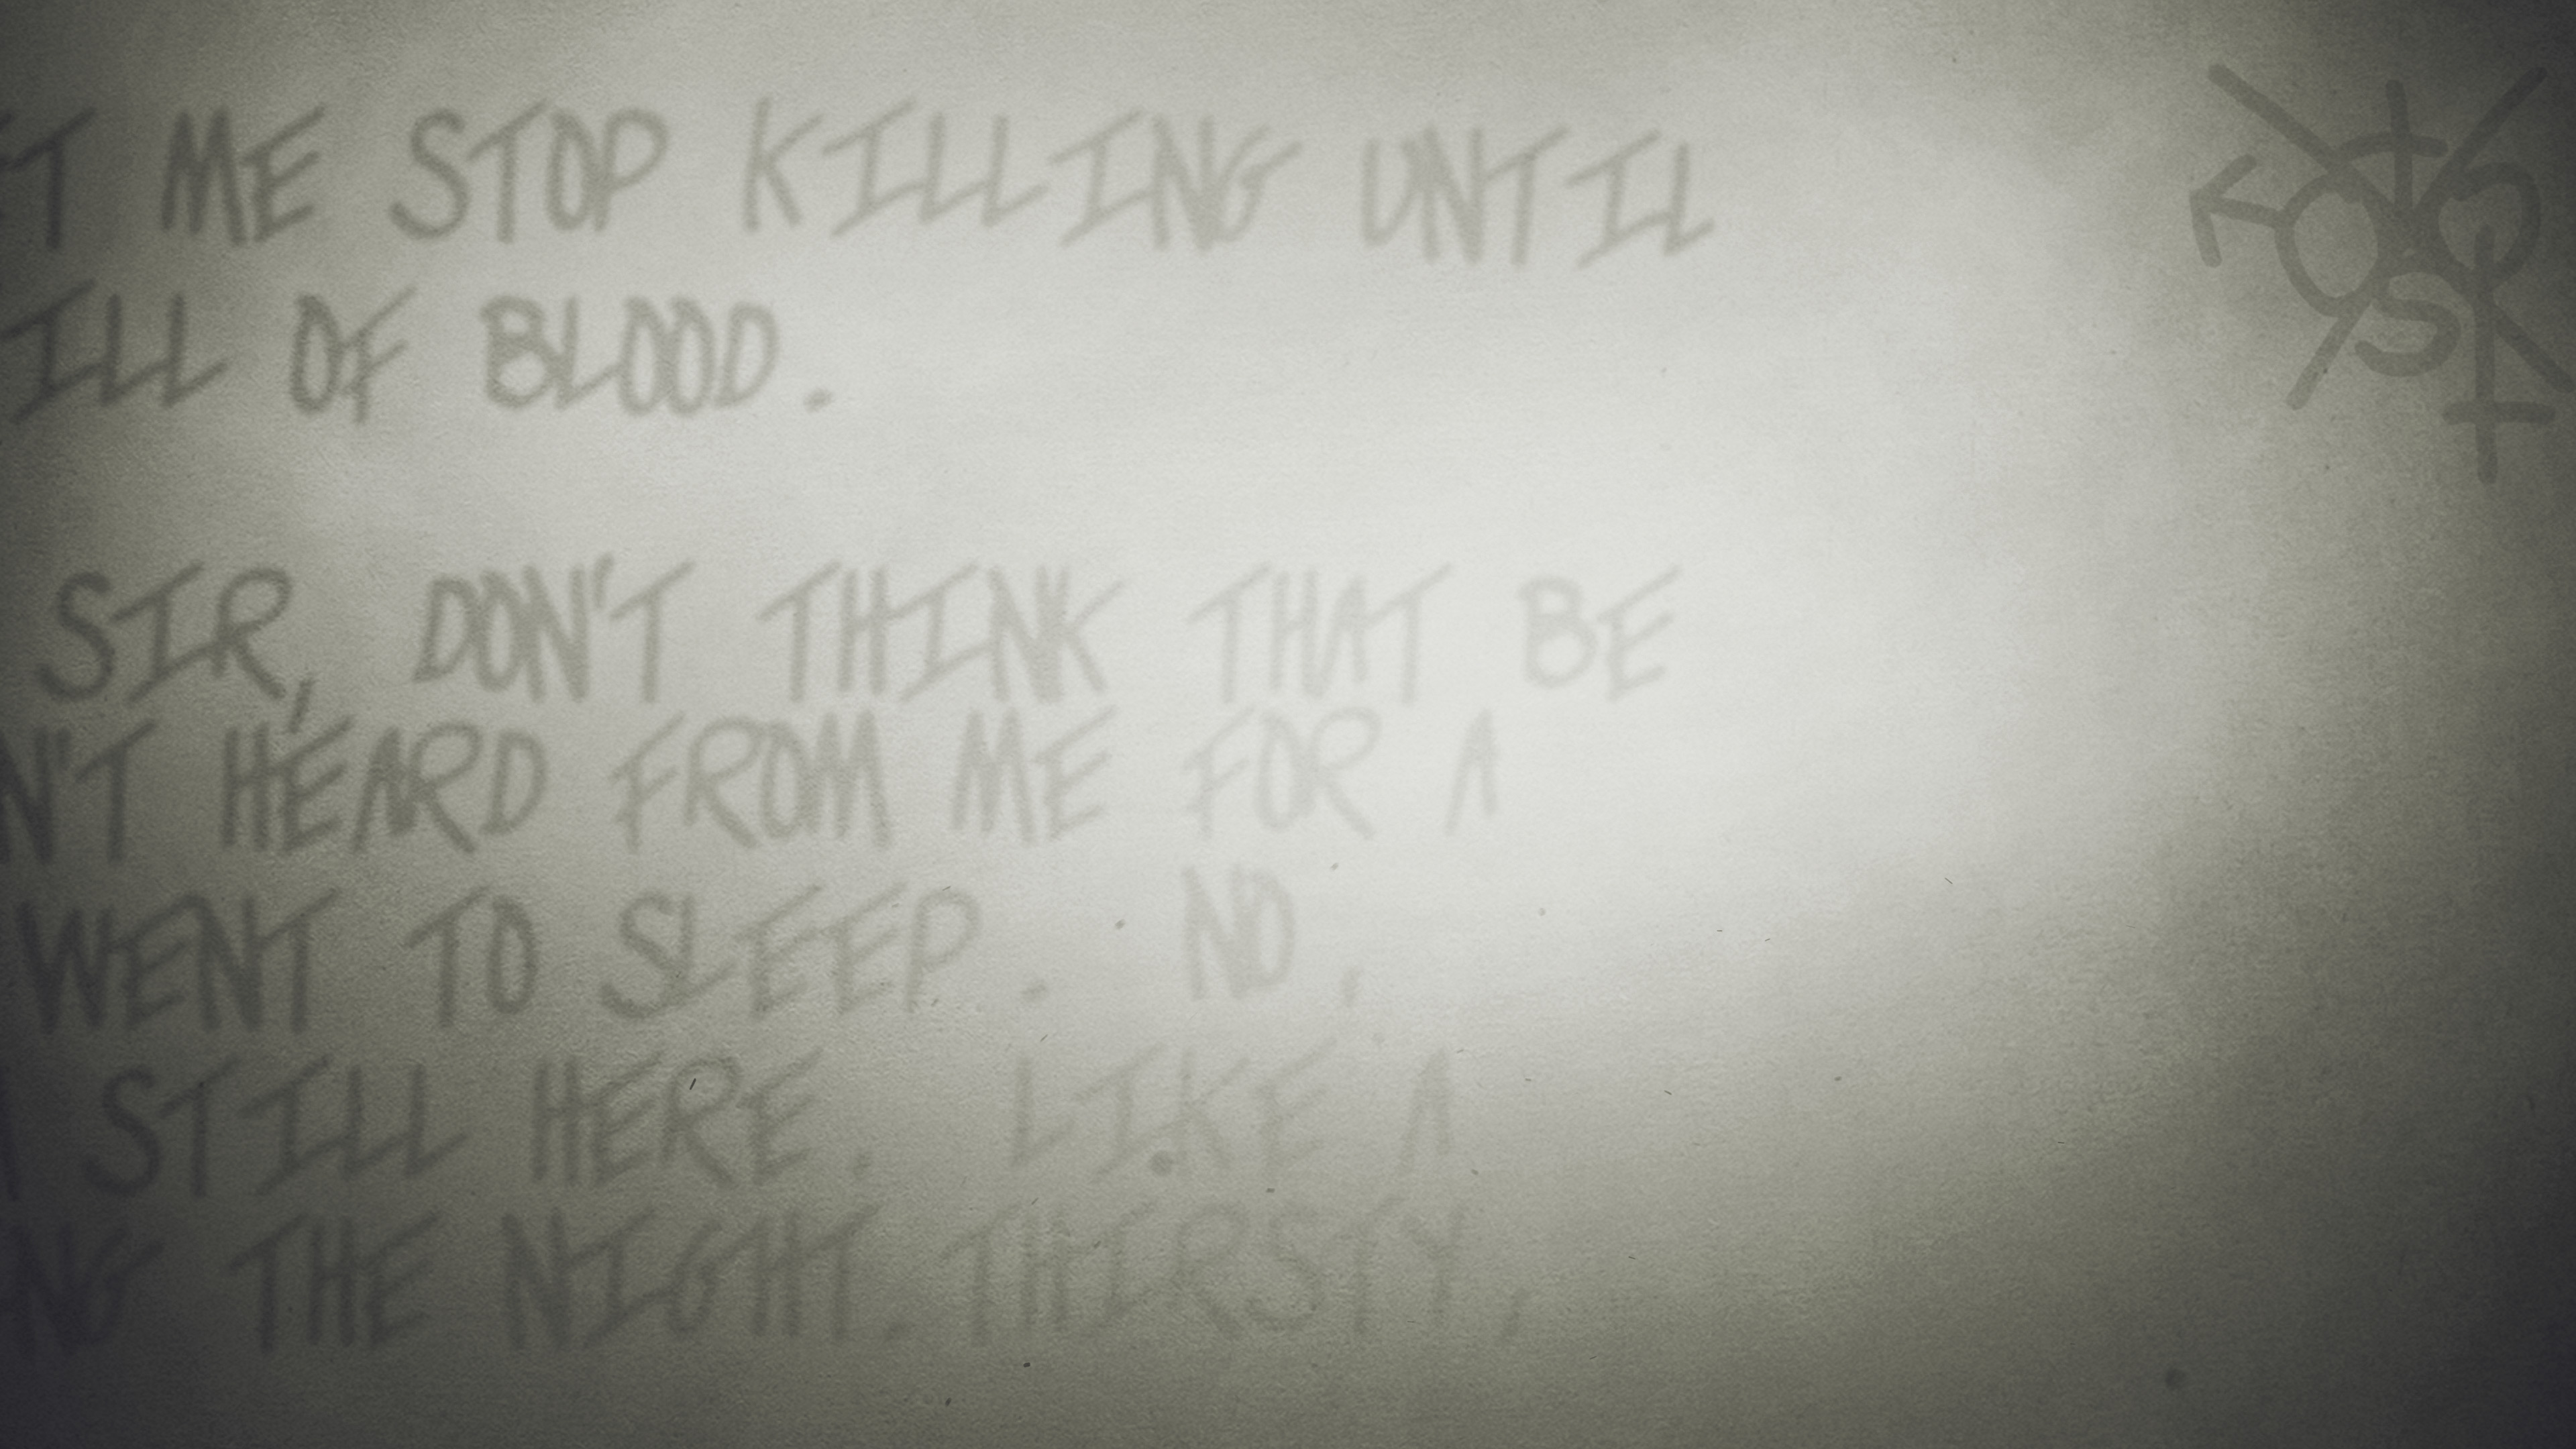 ET ME STOP KILLING UNTIL
ILL OF BLOOD.
SIR, DON'T THINK THAT BE
N'T HEARD FROM ME FOR A
WENT TO SLEEP. NO,
STILL HERE. LIKE A
NG THE NIGHT. THIRSTY,